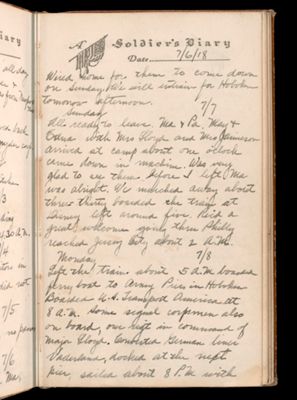 A
Soldier's Diary
Date 7/6/18
Wired home for them to come down
on Sunday. We will entrain for Hoboken
tomorrow afternoon.
Sunday 7/7
All ready to leave. Ma & Pa, May &
Edna with Mrs Lloyd and Mrs
arrived at camp about one o'clock
came down in machine. Was very
glad to see them before I left. Ma
was alright. We marched away about
three thirty boarded the train at
left around five. Rec'd a
great welcome going thru Philly
reached Jersey City about 2 A.M.
Monday 7/8
Left the train about 5 A.M boarded
ferry boat to Army Pier in Hoboken
Boarded U.S. Transport America at
8 A.M. Some signal corpsmen also
on board, our unit in command of
Major Lloyd. German liner
Vaderland, docked at the next
pier, sailed about 8 P.M. with